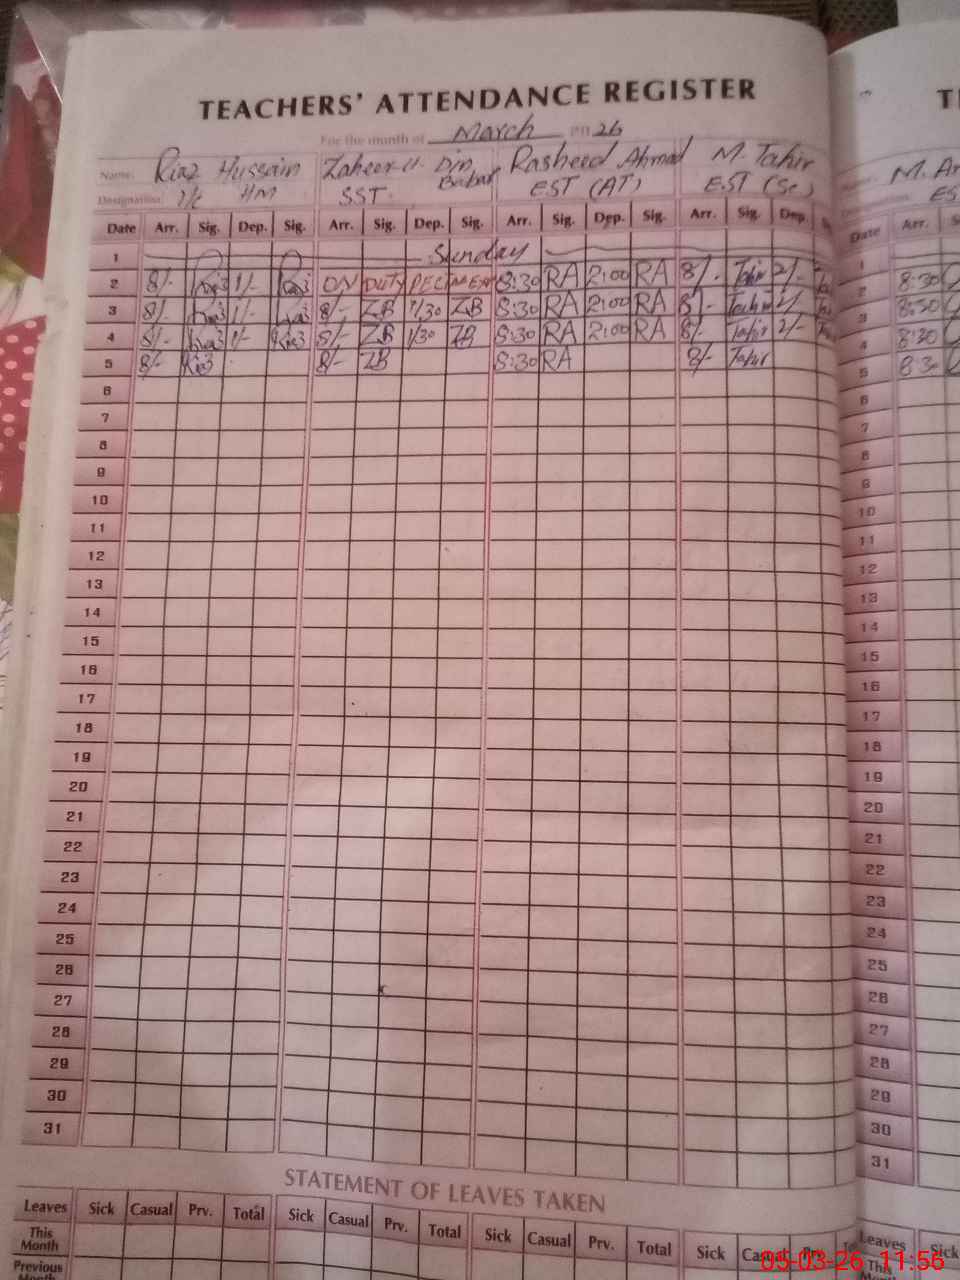 TEACHERS' ATTENDANCE REGISTER
For the month of March 26
Name: Riaz Hussain Zaheer U. Din Babar Rasheed Ahmad M. Tahir
Designation: I/c HM SST EST (AT) EST (Sc)
Date Arr. Sig. Dep. Sig. Arr. Sig. Dep. Sig. Arr. Sig. Dep. Sig. Arr. Sig. Dep. Date Arr.
1 Sunday 1
2 8/- Riaz 1/- Riaz ON DUTY 8:30 RA 2:00 RA 8/- Tahir 2/- 2 8:30
3 8/- Riaz 1/- Riaz 8/- ZB 1/30 ZB 8:30 RA 2:00 RA 8/- Tahir 2/- 3 8:30
4 8/- Riaz 1/- Riaz 8/- ZB 1/30 ZB 8:30 RA 2:00 RA 8/- Tahir 2/- 4 8:30
5 8/- Riaz 8/- ZB 8:30 RA 8/- Tahir 5 8:30
6 6
7 7
8 8
9 9
10 10
11 11
12 12
13 13
14 14
15 15
16 16
17 17
18 18
19 19
20 20
21 21
22 22
23 23
24 24
25 25
26 26
27 27
28 28
29 29
30 30
31 31
STATEMENT OF LEAVES TAKEN
Leaves Sick Casual Prv. Total Sick Casual Prv. Total Sick Casual Prv. Total Sick Leaves Sick
This Month This
Previous
05-03-26 11:56